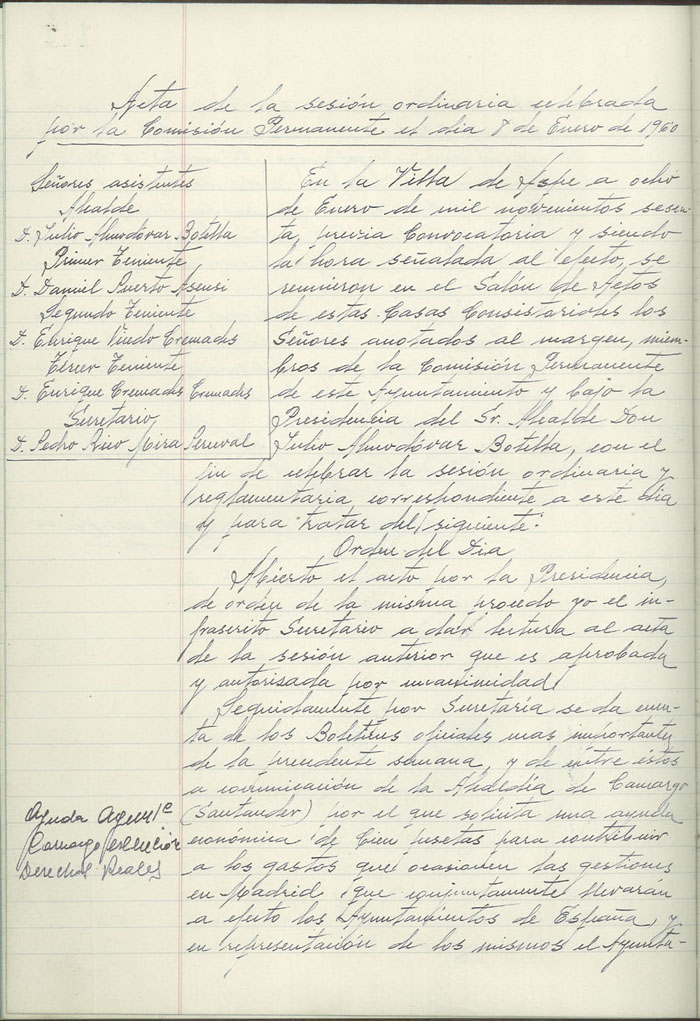 Acta de la sesión ordinaria celebrada
por la Comisión Permanente el dia 8 de Enero de 1960
Señores asistentes
Alcalde
D. Julio Almodóvar Botella
Primer Teniente
D. Daniel Puerto Asensi
Segundo Teniente
D. Enrique Vicedo Cremades
Tercer Teniente
D. Enrique Cremades Cremades
Secretario
D. Pedro Rico Mira Perceval
En la Villa de Aspe a ocho
de Enero de mil novecientos sesen-
ta, previa Convocatoria y siendo
la hora señalada al efecto, se
reunieron en el Salón de Actos
de estas Casas Consistoriales los
Señores anotados al margen, miem-
bros de la Comisión Permanente
de este Ayuntamiento y bajo la
Presidencia del Sr. Alcalde Don
Julio Almodóvar Botella, con el
fin de celebrar la sesión ordinaria y
reglamentaria correspondiente a este dia
y para tratar del siguiente:
Orden del Dia
Abierto el acto por la Presidencia,
de orden de la misma procedo yo el in-
frascrito Secretario a dar lectura al acta
de la sesión anterior que es aprobada
y autorisada por unanimidad.
Seguidamente por Secretaria se da cuen-
ta de los Boletines oficiales mas importantes
de la precedente semana, y de entre éstos
a comunicación de la Alcaldía de Camargo
(Santander) por el que solicita una ayuda
económica de Cien pesetas para contribuir
a los gastos que ocasionen las gestiones
en Madrid que conjuntamente llevaran
a efecto los Ayuntamientos de España, y
en representación de los mismos el Ayunta-
Ayuda
Camargo
Derechos Reales